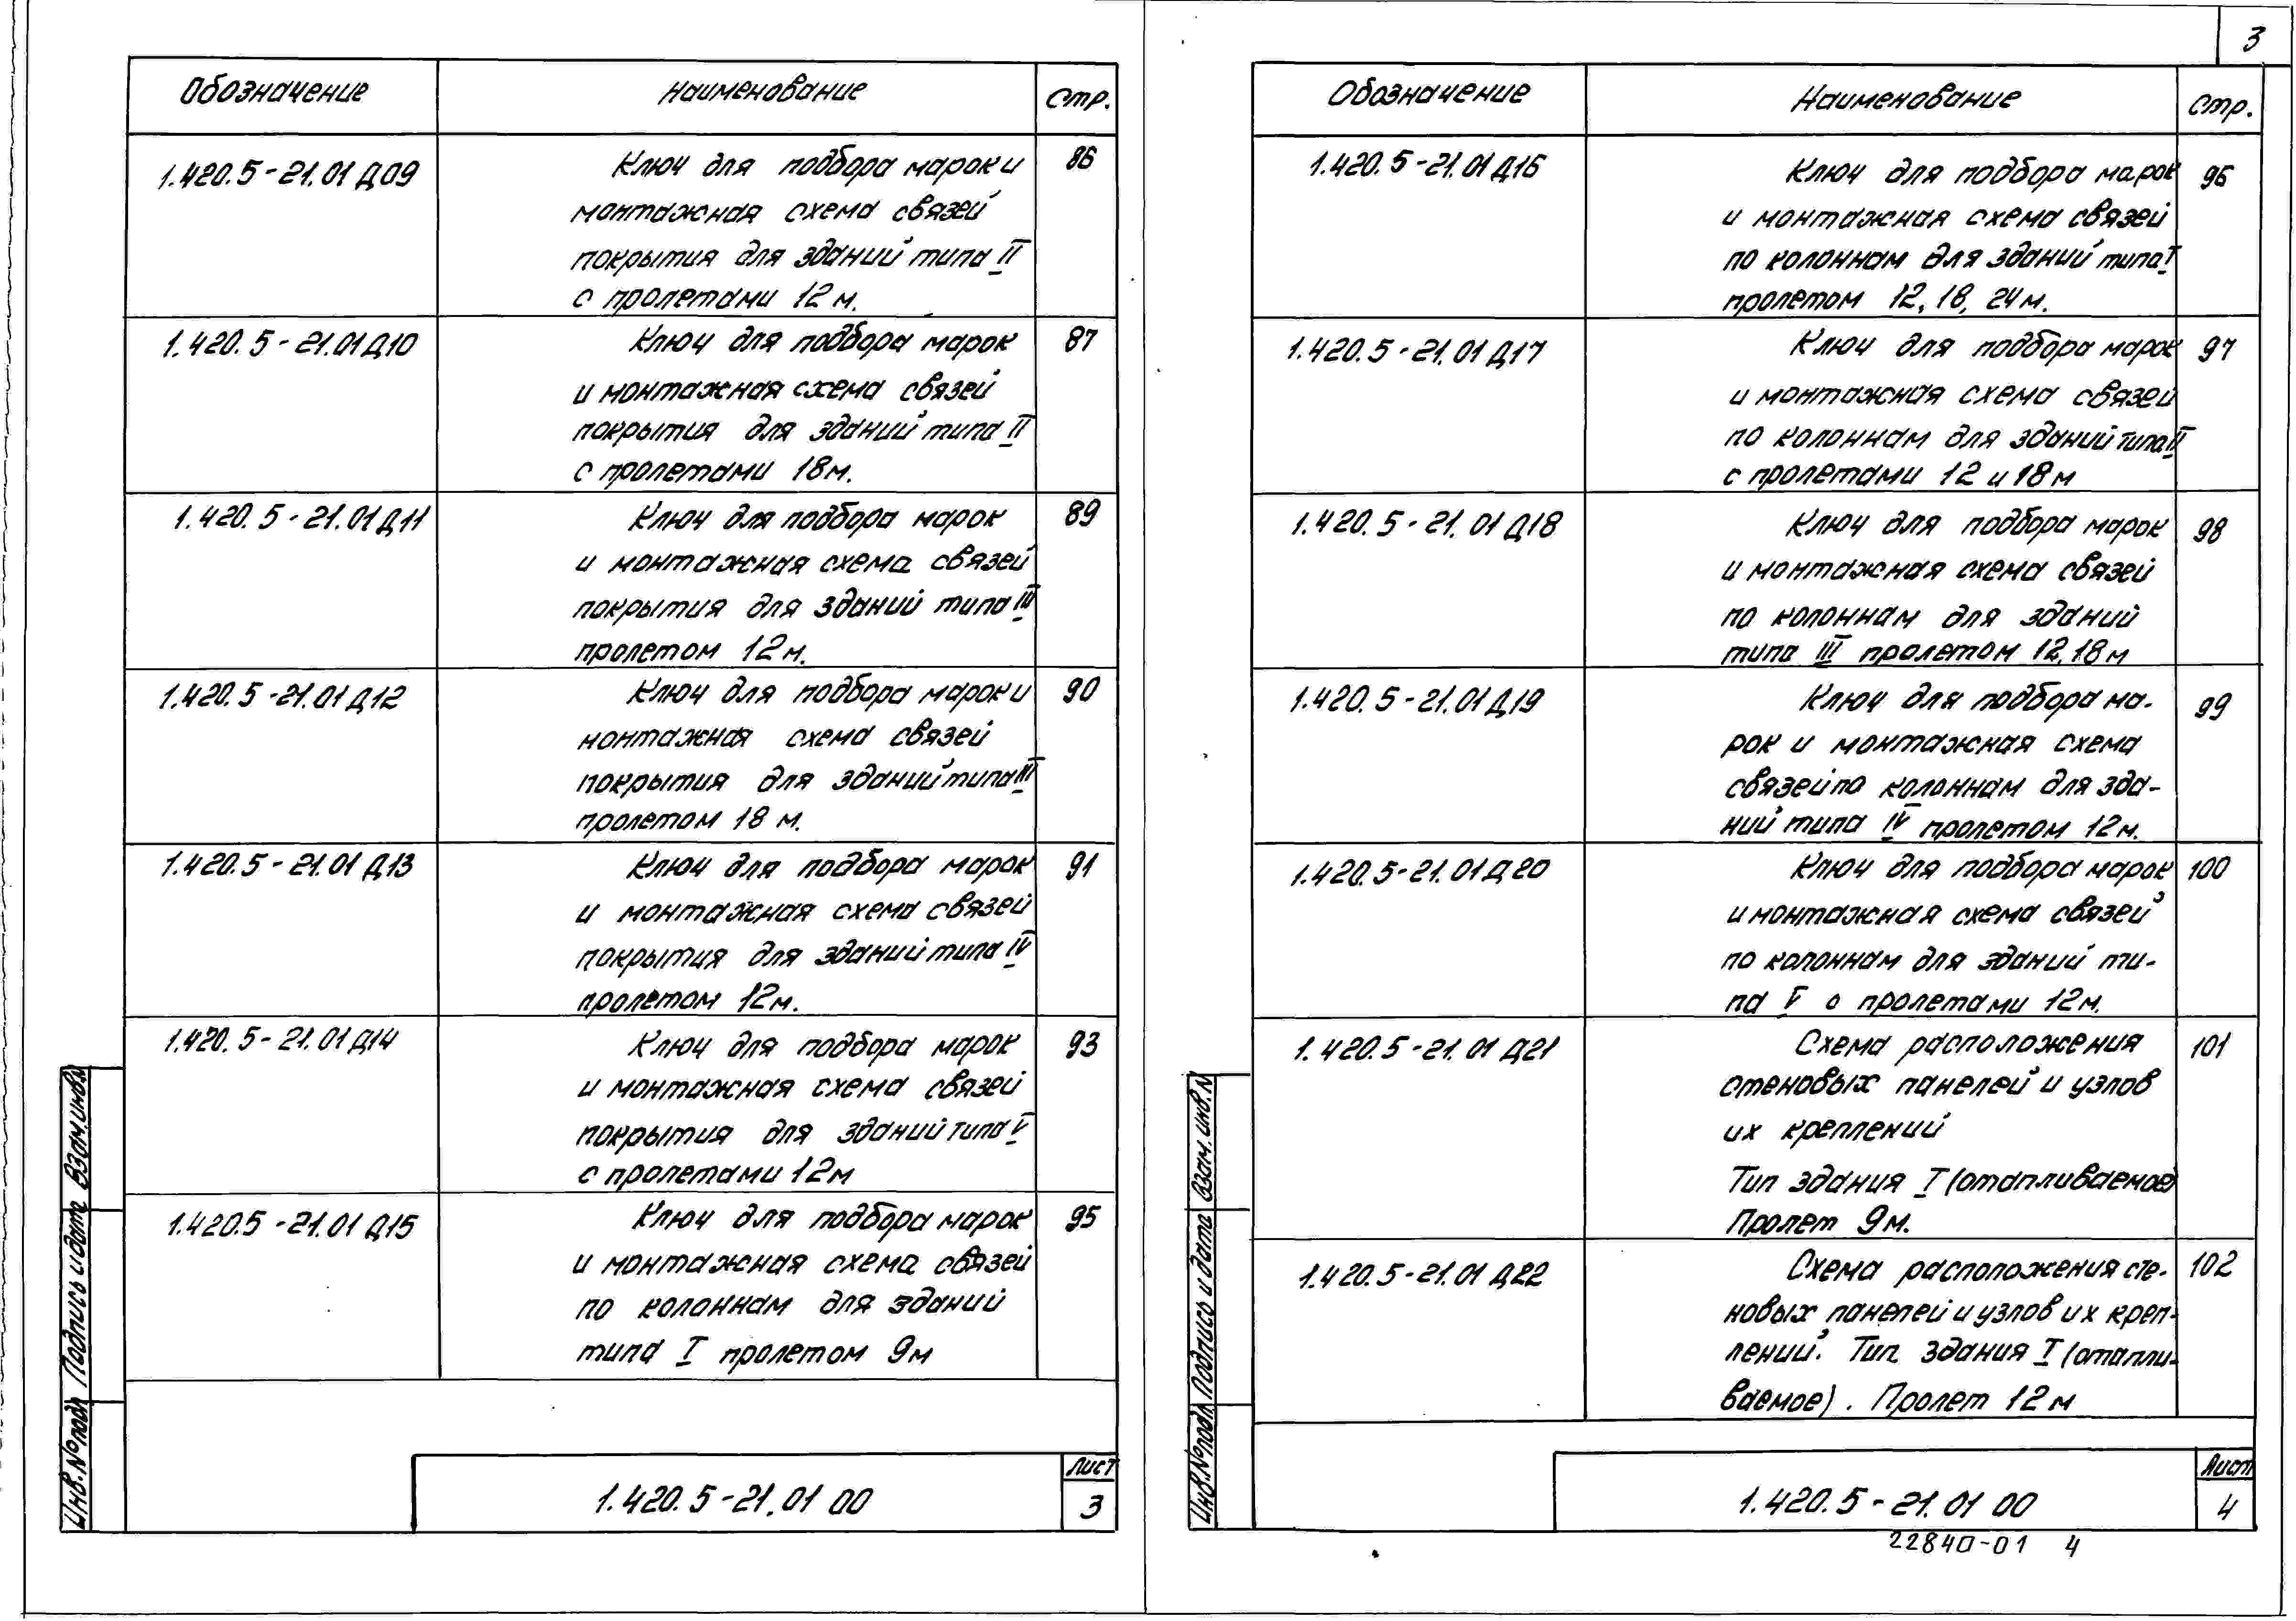 3
Обозначение Наименование Стр.
1.420.5-21.01 Д09 Ключ для подбора марок и 86
монтажная схема связей
покрытия для зданий типа II
с пролетами 12 м.
1.420.5-21.01 Д10 Ключ для подбора марок 87
и монтажная схема связей
покрытия для зданий типа II
с пролетами 18 м.
1.420.5-21.01 Д11 Ключ для подбора марок 89
и монтажная схема связей
покрытия для зданий типа III
пролетом 12 м.
1.420.5-21.01 Д12 Ключ для подбора марок и 90
монтажная схема связей
покрытия для зданий типа III
пролетом 18 м.
1.420.5-21.01 Д13 Ключ для подбора марок 91
и монтажная схема связей
покрытия для зданий типа IV
пролетом 12 м.
1.420.5-21.01 Д14 Ключ для подбора марок 93
и монтажная схема связей
покрытия для зданий типа V
с пролетами 12 м
1.420.5-21.01 Д15 Ключ для подбора марок 95
и монтажная схема связей
по колоннам для зданий
типа I пролетом 9 м
Инв.№подл Подпись и дата Взам.инв.№
1.420.5-21.01 00
Лист
3
Обозначение Наименование Стр.
1.420.5-21.01 Д16 Ключ для подбора марок 96
и монтажная схема связей
по колоннам для зданий типа I
пролетом 12, 18, 24 м.
1.420.5-21.01 Д17 Ключ для подбора марок 97
и монтажная схема связей
по колоннам для зданий типа II
с пролетами 12 и 18 м
1.420.5-21.01 Д18 Ключ для подбора марок 98
и монтажная схема связей
по колоннам для зданий
типа III пролетом 12, 18 м
1.420.5-21.01 Д19 Ключ для подбора ма- 99
рок и монтажная схема
связей по колоннам для зда-
ний типа IV пролетом 12 м.
1.420.5-21.01 Д20 Ключ для подбора марок 100
и монтажная схема связей
по колоннам для зданий ти-
па V с пролетами 12 м.
1.420.5-21.01 Д21 Схема расположения 101
стеновых панелей и узлов
их креплений
Тип здания I (отапливаемое)
Пролет 9 м.
1.420.5-21.01 Д22 Схема расположения сте- 102
новых панелей и узлов их креп-
лений. Тип здания I (отапли-
ваемое). Пролет 12 м
Инв.№подл Подпись и дата Взам.инв.№
1.420.5-21.01 00
Лист
4
22840-01 4